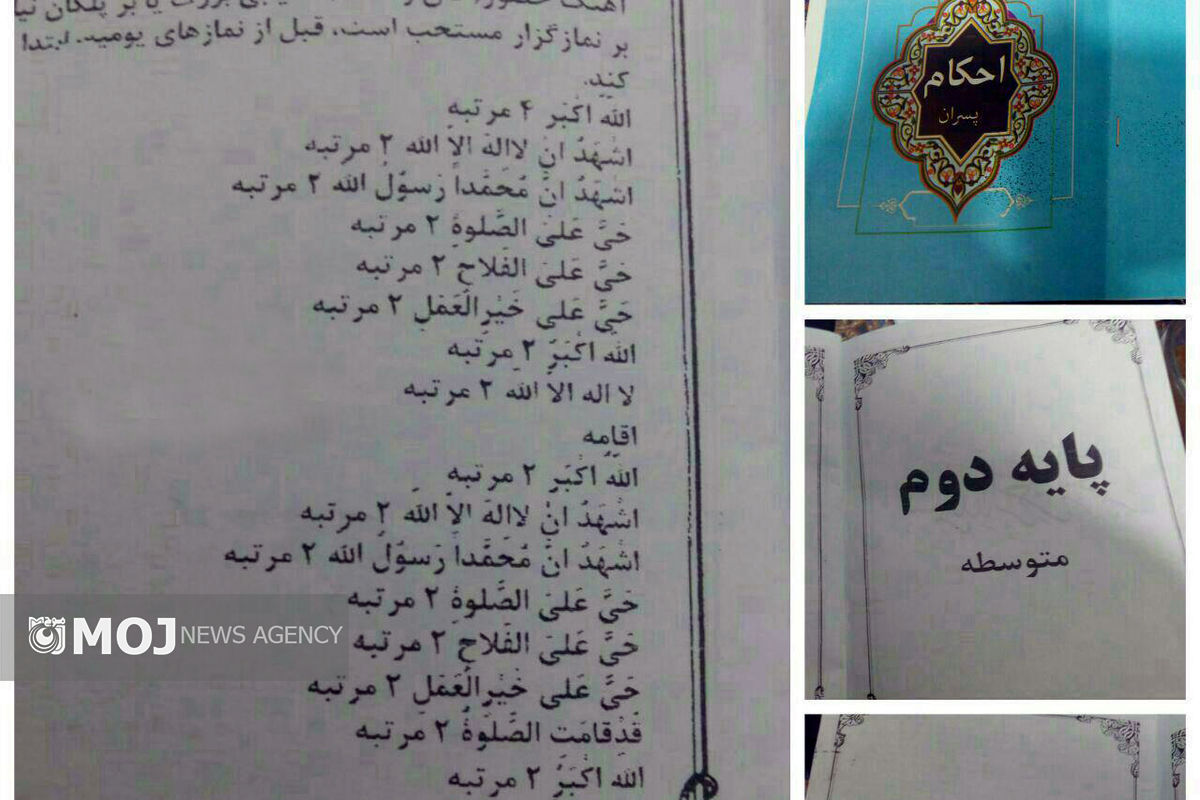 بر نمازگزار مستحب است، قبل از نمازهای یومیه، ابتدا
کند.
الله اَکبَر ۴ مرتبه
اَشهَدُ اَن لااِلهَ اِلاَّ الله ۲ مرتبه
اَشهَدُ اَنَّ مُحَمَّداً رَسوُلُ الله ۲ مرتبه
حَیَّ عَلیَ الصَّلوةِ ۲ مرتبه
حَیَّ عَلیَ الفَلاحِ ۲ مرتبه
حَیَّ عَلی خَیرِالعَمَلِ ۲ مرتبه
الله اَکبَرُ ۲ مرتبه
لا اله الا الله ۲ مرتبه
اقامه
الله اَکبَر ۲ مرتبه
اَشهَدُ اَن لااِلهَ اِلاَّ الله ۲ مرتبه
اَشهَدُ اَنَّ مُحَمَّداً رَسوُلُ الله ۲ مرتبه
حَیَّ عَلیَ الصَّلوةِ ۲ مرتبه
حَیَّ عَلیَ الفَلاحِ ۲ مرتبه
حَیَّ عَلی خَیرِالعَمَلِ ۲ مرتبه
قَدقامَتِ الصَّلوةُ ۲ مرتبه
الله اَکبَرُ ۲ مرتبه
احکام
پسران
پایه دوم
متوسطه
MOJ NEWS AGENCY